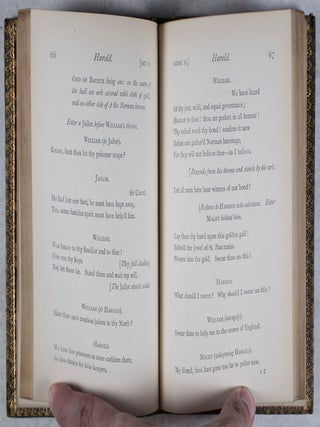 66
Harold.
[ACT II.
ODO OF BAYEUX being one: in the centre of
the hall an ark covered with cloth of gold:
and on either side of it the Norman barons.
Enter a Jailor before WILLIAM'S throne.
WILLIAM (to Jailor).
Knave, hast thou let thy prisoner scape?
JAILOR.
Sir Count,
He had but one foot, he must have hopt away,
Yea, some familiar spirit must have help'd him.
WILLIAM.
Woe knave to thy familiar and to thee!
Give me thy keys.
[They fall clashing.
Nay let them lie. Stand there and wait my will.
[The Jailor stands aside.
WILLIAM (to HAROLD).
Hast thou such trustless jailors in thy North?
HAROLD.
We have few prisoners in mine earldom there,
So less chance for false keepers.
SCENE II.]
Harold.
67
WILLIAM.
We have heard
Of thy just, mild, and equal governance;
Honour to thee! thou art perfect in all honour!
Thy naked word thy bond! confirm it now
Before our gather'd Norman baronage,
For they will not believe thee—as I believe.
[Descends from his throne and stands by the ark.
Let all men here bear witness of our bond!
[Beckons to HAROLD, who advances. Enter
MALET behind him.
Lay thou thy hand upon this golden pall!
Behold the jewel of St. Pancratius
Woven into the gold. Swear thou on this!
HAROLD.
What should I swear? Why should I swear on this?
WILLIAM (savagely).
Swear thou to help me to the crown of England.
MALET (whispering HAROLD).
My friend, thou hast gone too far to palter now.